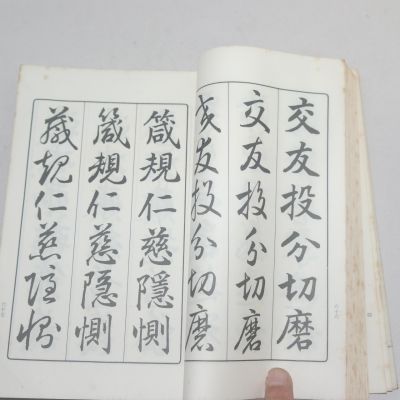 交友投分切磨
交友投分切磨
交友投分切磨
箴規仁慈隱惻
箴規仁慈隐惻
箴規仁慈隐惻